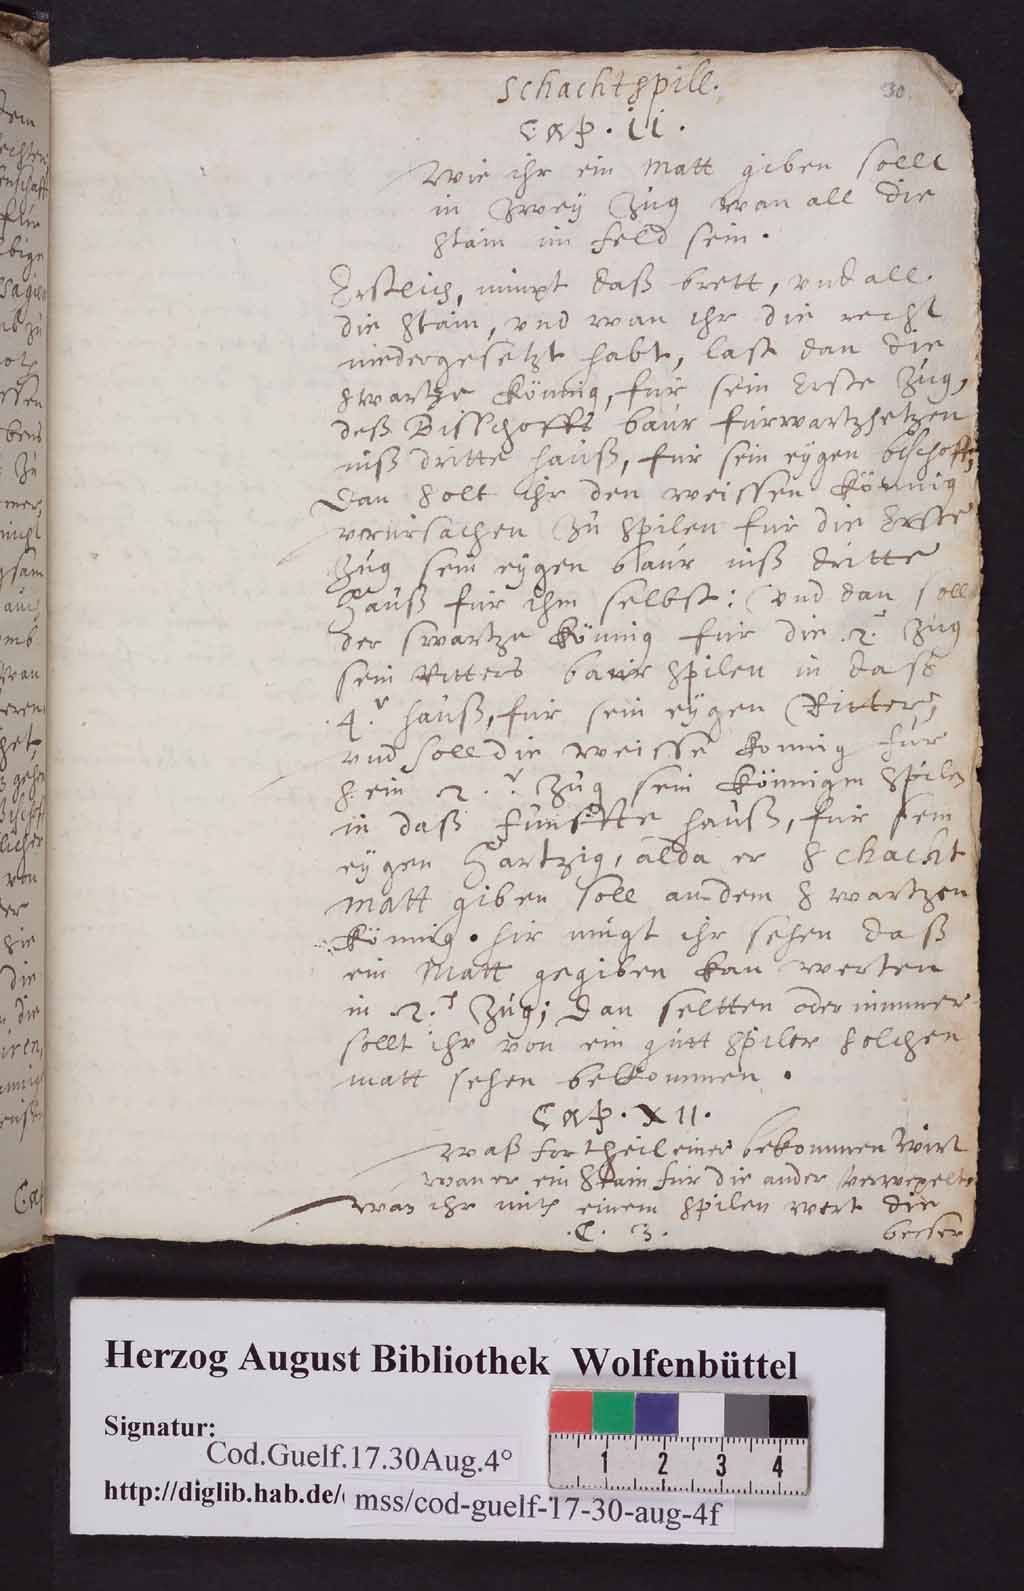 Schachtspill.
30.
Cap. ii.
Wie ihr ein Matt giben soll
in Zwey Zug wan all die
stain im feld sein.
Erstlich, nimpt daß brett, vnd all
die stain, vnd wan ihr die recht
niedergesetzt habt, last dan die
swartze könnig, fur sein Erste Zug,
deß Bisschoffs baur furwartz setzen
niß dritte hauß, fur sein eygen bischoff,
Dan solt ihr den weissen könnig
verursachen Zu spilen fur die Erste
Zug sein eygen baur niß dritte
Hauß fur ihm selbst: vnd dan soll
der swartze könnig fur die .2.r Zug
sein Ritters baur spilen in daß
.4.r hauß, fur sein eygen Ritter,
vnd soll die weisse konnig fur
sein 2.r Zug sein könnigin spilen
in daß funffte hauß, fur sein
eygen Hartzig, alda er schacht
matt giben soll an dem swartzen
könnig. hir mügt ihr sehen daß
ein Matt gegiben kan werten
in 2.r Zug; Dan seltten oder nimmer
sollt ihr von ein gutt spiler solchen
matt sehen bekkommen.
Cap. XII.
Waß fortheil einer bekommen wirt
wan er ein stain fur die ander verwexelt,
wan ihr mith einem spilen wert die
.C. 3.
besser
Herzog August Bibliothek Wolfenbüttel
Signatur:
Cod.Guelf.17.30Aug.4°
http://diglib.hab.de/
mss/cod-guelf-17-30-aug-4f
1 2 3 4